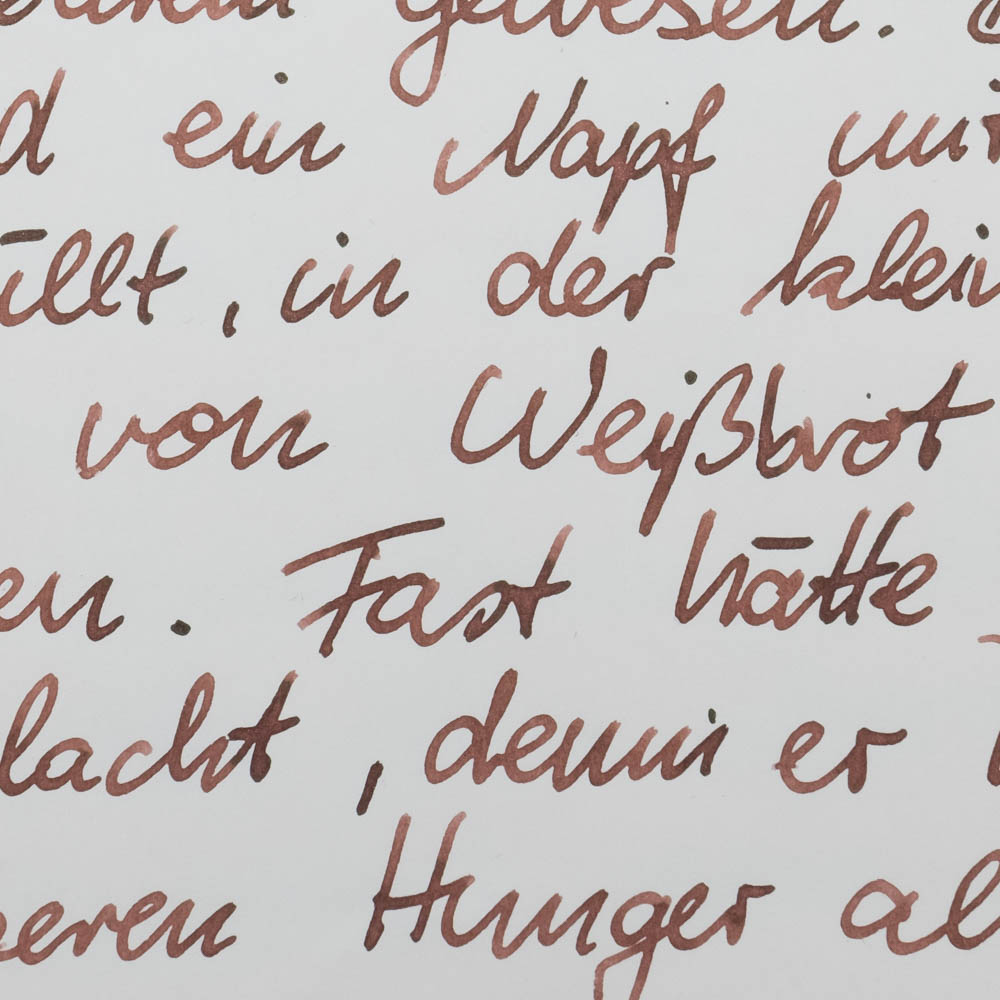 gewesen.
d ein Napf mit
üllt, in der klein
von Weißbrot
en. Fast hätte
lacht, denn er
eren Hunger al